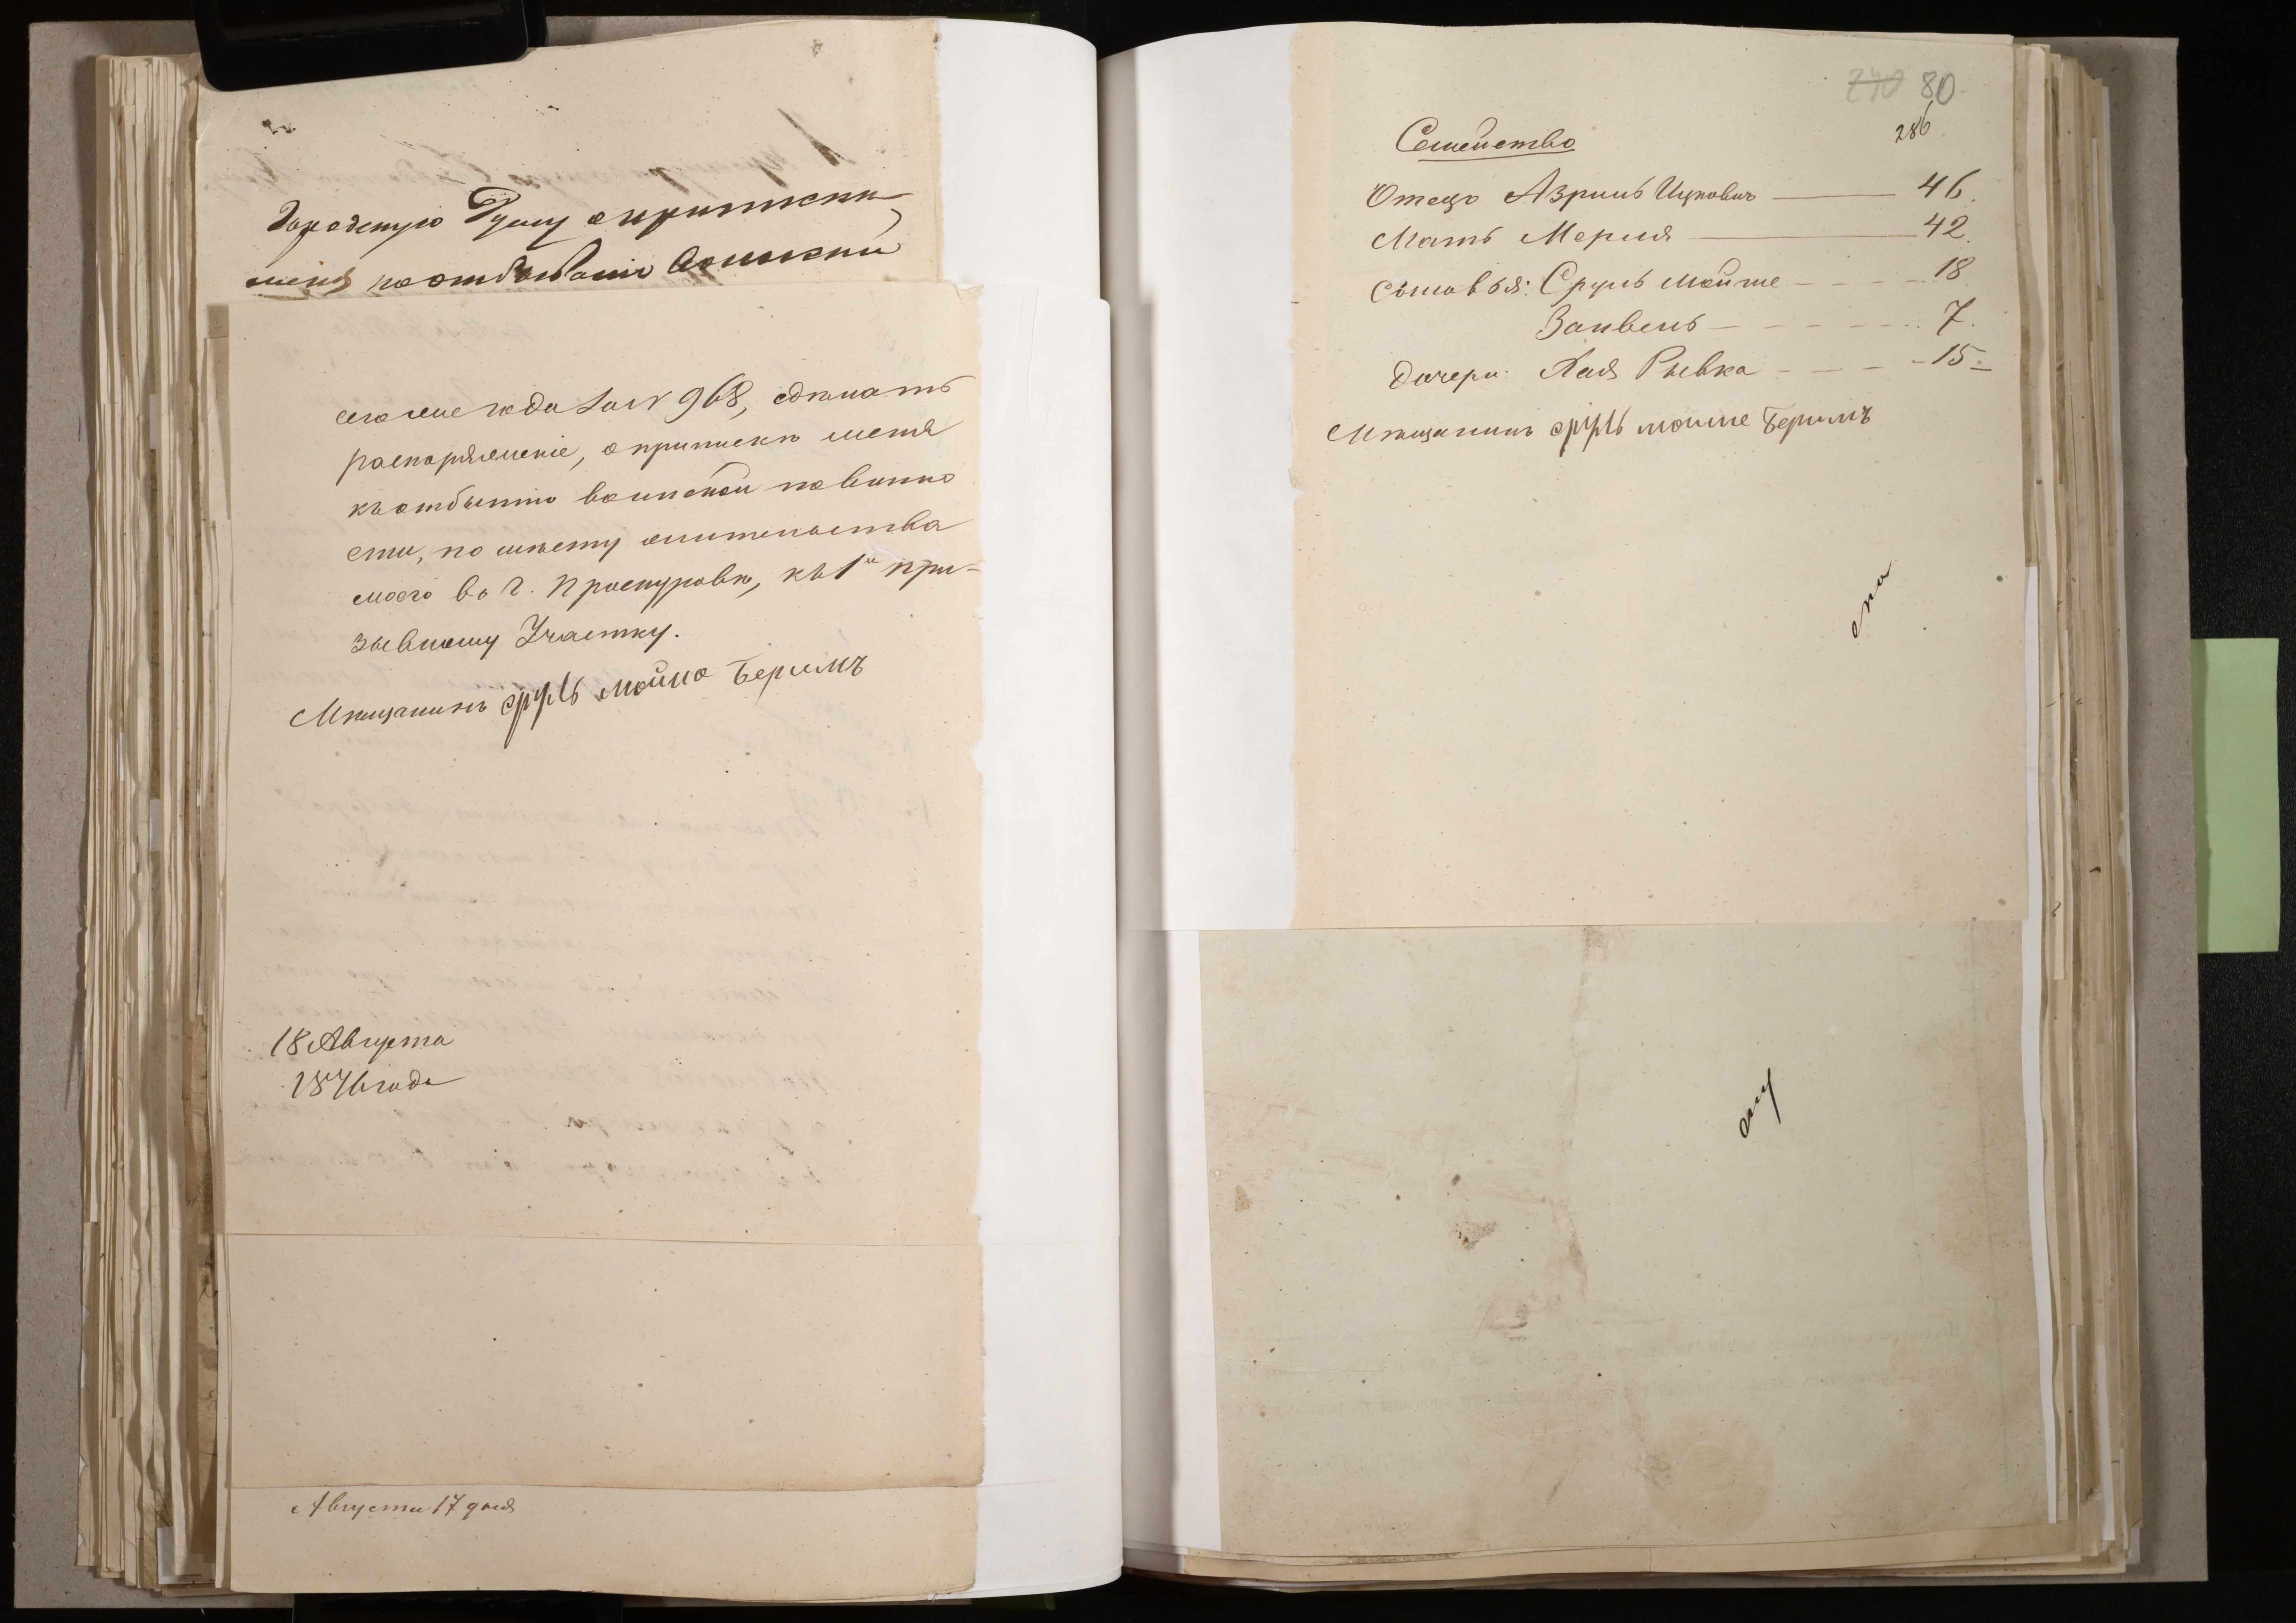 Городскую Думу о приписки
меня по отбыванію воинской
сего же года за № 968, сдѣлать
распоряженіе, о припискѣ меня
къ отбытію воинской повинно
сти, по мѣсту жительства
моего въ г. Проскуровѣ, къ 1м при-
зывному Участку.
Мѣщанинъ Сруль Мойше Беримъ
18 Августа
1876 года
Августа 17 дня
240 80
286
Семейство
Отецъ Азриль Ицковичъ 46.
Мать Мерля 42.
Сыновья: Сруль Мойше 18
Занвель 7.
дочери: Хая Рывка 15.
Мѣщанинъ Сруль Мойше Беримъ